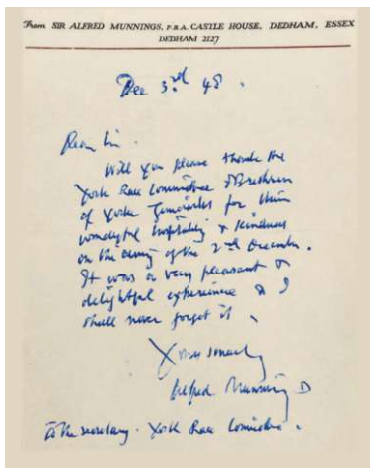 From SIR ALFRED MUNNINGS, P.R.A. CASTLE HOUSE, DEDHAM, ESSEX
DEDHAM 2127
Dec 3rd 48.
Dear Sir.
Will you please thank the
York Race Committee & Brethren
of York for their
wonderful hospitality & kindness
on the evening of the 2nd December.
It was a very pleasant &
delightful experience & I
shall never forget it.
Yours sincerely
Alfred Munnings
To the secretary. York Race Committee.